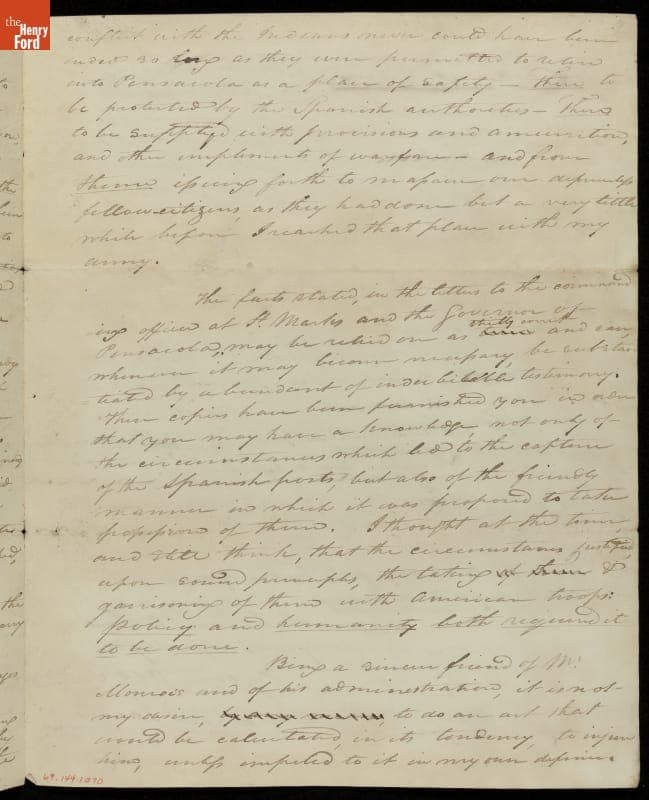 the
Henry
Ford
conflict with the Indians never could have been
ended so long as they were permitted to retire
into Pensacola as a place of safety — there to
be protected by the Spanish authorities — There
to be supplyed with provisions and amunition,
and other implements of warfare — and from
thence issuing forth to massacre our defenceless
fellow-citizens, as they had done but a very little
while before I reached that place with my
army.
The facts stated, in the letters to the command
ing officer at St. Marks and the Governor of
Pensacola, may be relied on as strictly correct and can,
whenever it may become necessary, be substan
tiated by abundant of indubitable testimony.
These copies have been furnished you in order
that you may have a knowledge not only of
the circumstances which led to the capture
of the Spanish posts, but also of the friendly
manner in which it was proposed to take
possession of them. I thought at the time,
and still think, that the circumstances justified,
upon sound principles, the taking &
garrisoning of them with American troops:
Policy and humanity both required it
to be done.
Being a sincere friend of Mr.
Monroe and of his administration, it is not
my desire, to do an act that
would be calculated, in its tendency, to injure
him, unless impelled to it in my own defence.
69.144.1070